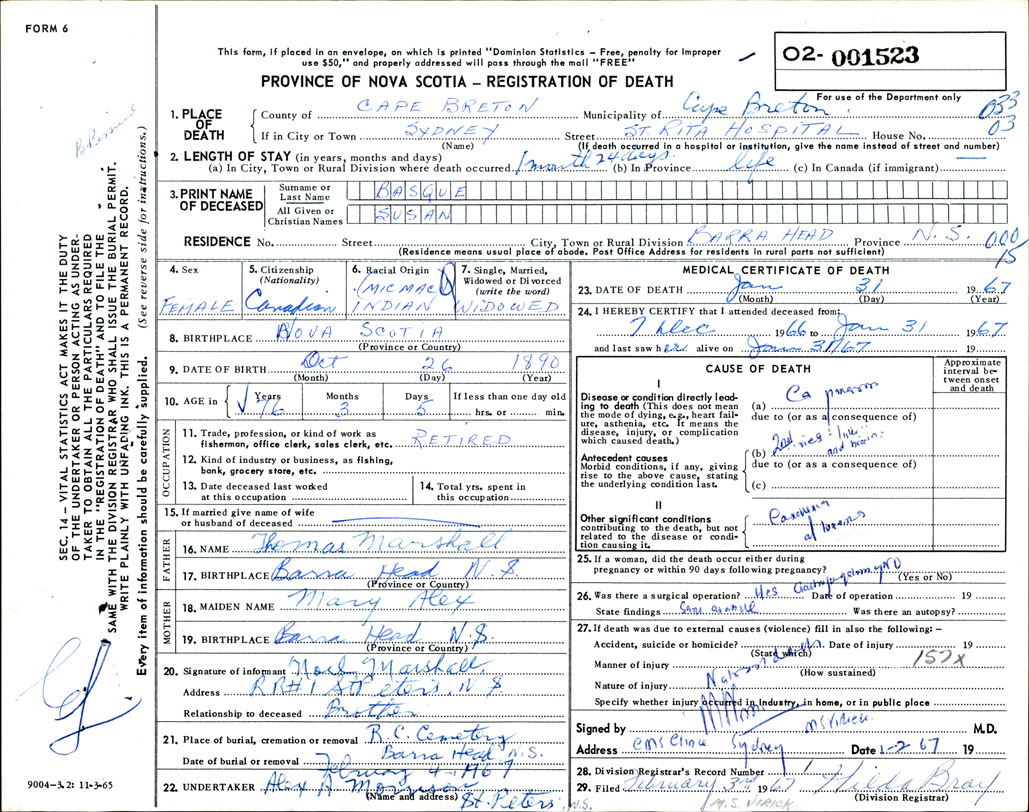 FORM 6
This form, if placed in an envelope, on which is printed "Dominion Statistics – Free, penalty for improper
use $50," and properly addressed will pass through the mail "FREE"
O2- 001523
PROVINCE OF NOVA SCOTIA – REGISTRATION OF DEATH
For use of the Department only
1. PLACE OF DEATH
County of CAPE BRETON Municipality of Cape Breton 033
If in City or Town SYDNEY Street ST. RITA HOSPITAL House No. 03
(Name) (If death occurred in a hospital or institution, give the name instead of street and number)
2. LENGTH OF STAY (in years, months and days)
(a) In City, Town or Rural Division where death occurred 1 month 24 days. (b) In Province life (c) In Canada (if immigrant) —
3. PRINT NAME OF DECEASED
Surname or Last Name BASQUE
All Given or Christian Names SUSAN
RESIDENCE No. Street City, Town or Rural Division BARRA HEAD Province N.S. 000
(Residence means usual place of abode. Post Office Address for residents in rural parts not sufficient) 15
4. Sex FEMALE
5. Citizenship (Nationality) Canadian
6. Racial Origin (MICMAC) INDIAN
7. Single, Married, Widowed or Divorced (write the word) WIDOWED
8. BIRTHPLACE NOVA SCOTIA
(Province or Country)
9. DATE OF BIRTH Oct 26 1890
(Month) (Day) (Year)
10. AGE in Years 76 Months 3 Days 5 If less than one day old
hrs. or min.
OCCUPATION
11. Trade, profession, or kind of work as
fisherman, office clerk, sales clerk, etc. RETIRED
12. Kind of industry or business, as fishing,
bank, grocery store, etc.
13. Date deceased last worked
at this occupation
14. Total yrs. spent in
this occupation
15. If married give name of wife
or husband of deceased
FATHER
16. NAME Thomas Marshall
17. BIRTHPLACE Barra Head N.S.
(Province or Country)
MOTHER
18. MAIDEN NAME Mary Alex
19. BIRTHPLACE Barra Head N.S.
(Province or Country)
20. Signature of informant Noel Marshall
Address RR#1 St Peters, N S
Relationship to deceased Brother
21. Place of burial, cremation or removal R.C. Cemetery
Barra Head N.S.
Date of burial or removal February 4 - 1967
22. UNDERTAKER Alex A Morrison
(Name and address) St. Peters N.S.
MEDICAL CERTIFICATE OF DEATH
23. DATE OF DEATH Jan 31 19 67
(Month) (Day) (Year)
24. I HEREBY CERTIFY that I attended deceased from:
7 Dec 1966 to Jan 31 1967
and last saw her alive on Jan 31/67 19
CAUSE OF DEATH
Approximate interval between onset and death
I
Disease or condition directly leading to death (This does not mean the mode of dying, e.g., heart failure, asthenia, etc. It means the disease, injury, or complication which caused death.)
(a) Ca
due to (or as a consequence of)
Antecedent causes
Morbid conditions, if any, giving rise to the above cause, stating the underlying condition last.
(b)
due to (or as a consequence of)
(c)
II
Other significant conditions
contributing to the death, but not related to the disease or condition causing it.
25. If a woman, did the death occur either during
pregnancy or within 90 days following pregnancy? NO
(Yes or No)
26. Was there a surgical operation? Yes Date of operation 19
State findings Was there an autopsy?
27. If death was due to external causes (violence) fill in also the following: –
Accident, suicide or homicide? Date of injury 19
(State which) 157X
Manner of injury
(How sustained)
Nature of injury
Specify whether injury occurred in industry, in home, or in public place
Signed by M.D.
Address CMS Clinic Sydney Date 1-2 67 19
28. Division Registrar's Record Number 1
29. Filed February 3rd 1967 Hilda Bray
(Division Registrar)
SEC. 14 – VITAL STATISTICS ACT MAKES IT THE DUTY
OF THE UNDERTAKER OR PERSON ACTING AS UNDER-
TAKER TO OBTAIN ALL THE PARTICULARS REQUIRED
IN THE "REGISTRATION OF DEATH" AND TO FILE THE
SAME WITH THE DIVISION REGISTRAR WHO SHALL ISSUE THE BURIAL PERMIT.
WRITE PLAINLY WITH UNFADING INK. THIS IS A PERMANENT RECORD.
Every item of information should be carefully supplied. (See reverse side for instructions.)
9004-3.2: 11-3-65